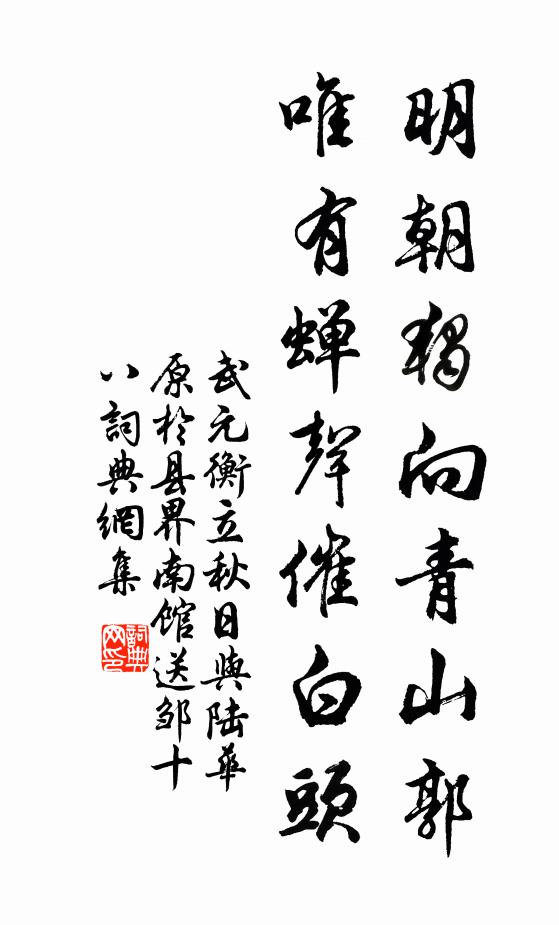 明朝獨向青山郭
唯有蟬聲催白頭
武元衡立秋日與陸華
原於县界南馆送邹十
八詞典網集
詞典网印